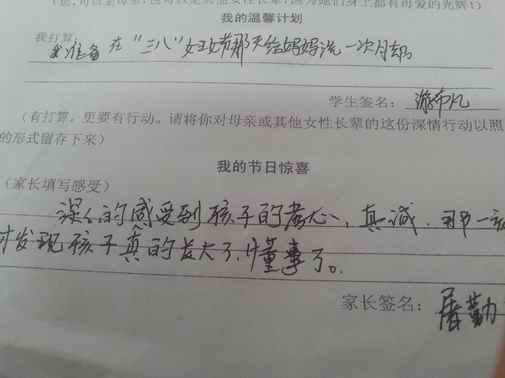 也可以是女性长辈,因为她们身上都有母爱的光辉!)
我的温馨计划
我打算:
我准备在"三八"妇女节那天给妈妈洗一次脚
学生签名:
(有打算,更要有行动。请将你对母亲或其他女性长辈的这份深情行动以照
的形式留存下来)
我的节日惊喜
(家长填写感受)
深深的感受到孩子的孝心、真诚.那一刻
才发现孩子真的长大了,懂事了。
家长签名:屠勤